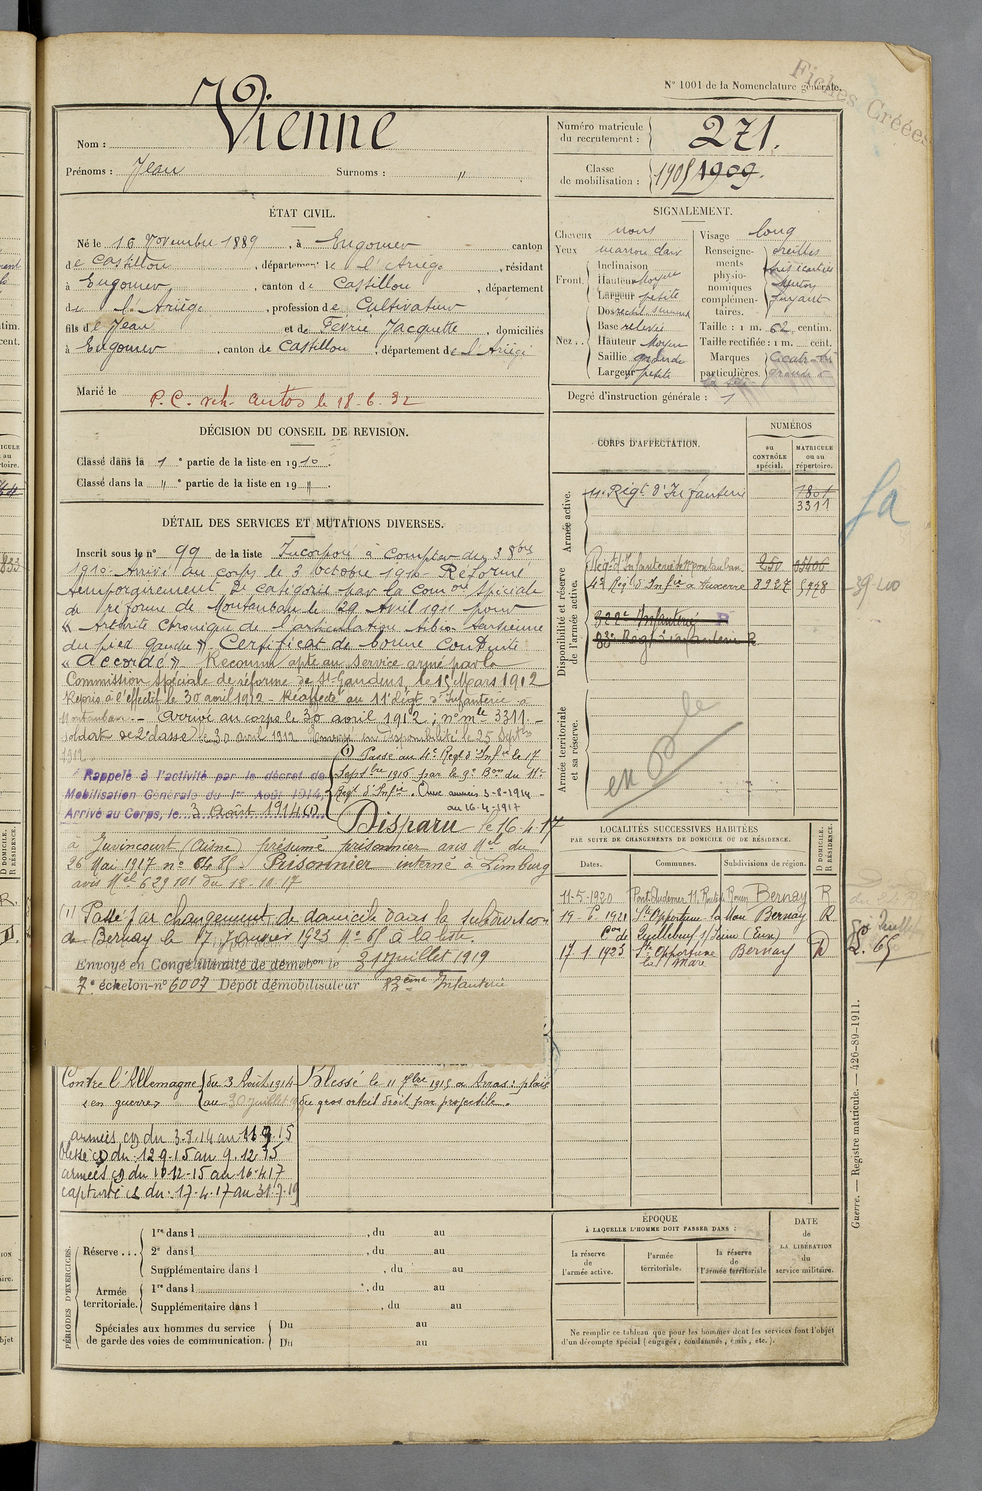 Fiches Créées
N° 1001 de la Nomenclature générale.
Nom : Vienne
Prénoms : Jean Surnoms : "
Numéro matricule du recrutement : 271.
Classe de mobilisation : 1905 1909.
ÉTAT CIVIL.
Né le 16 Novembre 1889, à Engomer canton
de Castillon, département de l'Ariège, résidant
à Engomer, canton de Castillon, département
de l'Ariège, profession de Cultivateur
fils de Jean et de Févrie Jacquette, domiciliés
à Engomer, canton de Castillon, département de l'Ariège
Marié le
P.C. le 18.6.32
SIGNALEMENT.
Cheveux noirs Visage long
Yeux marron clair
Front. Inclinaison
Hauteur Moyenne
Largeur petite
Nez. Dos
Base relevée
Hauteur Moyen
Saillie grande
Largeur petite
Renseignements physionomiques complémentaires. oreilles
écartées
Menton
fuyant
Taille : 1 m. 62 centim.
Taille rectifiée : 1 m. cent.
Marques particulières.
Degré d'instruction générale : 1
DÉCISION DU CONSEIL DE REVISION.
Classé dans la 1e partie de la liste en 1910.
Classé dans la " e partie de la liste en 19 ".
CORPS D'AFFECTATION.
NUMÉROS
au CONTRÔLE spécial.
MATRICULE ou au répertoire.
Armée active.
11e Régt d'Infanterie 1801
3311
Disponibilité et réserve de l'armée active.
Régt d'Infanterie de Montauban 250 05406
4e Régt d'Infie à Auxerre 2927 5978
322e Infanterie
83e Régt Infanterie
Armée territoriale et sa réserve.
DÉTAIL DES SERVICES ET MUTATIONS DIVERSES.
Inscrit sous le n° 99 de la liste Incorporé à compter du 3 8bre
1910. Arrivé au corps le 3 octobre 1910. Réformé
temporairement 2e catégorie par la Comon spéciale
de réforme de Montauban le 29 Avril 1911 pour
« Arthrite chronique de l'articulation tibio tarsienne
du pied gauche ». Certificat de bonne Conduite
« Accordé » Reconnu apte au service armé par la
Commission spéciale de réforme de St Gaudens, le 15 Mars 1912
Repris à l'effectif le 30 avril 1912 - Réaffecté au 11e Régt d'Infanterie à
Montauban. - Arrivé au corps le 30 avril 1912 ; n° mle 3311. -
soldat de 2e classe le 30 avril 1912. Envoyé en disponibilité le 25 Septbre
1912.
Rappelé à l'activité par le décret de
Mobilisation Générale du 1er Août 1914,
Arrivé au Corps, le 3 Août 1914 (1)
(1) Passé au 4e Régt d'Infie le 17
Septbre 1916 par le 9e Bon du 11e
Régt d'Infie. Aux armées 3-8-1914 -
au 16-4-1917
Disparu le 16-4-17
à Juvincourt (Aisne) présumé prisonnier avis Mel du
26 Mai 1917 n° 6485. Prisonnier interné à Limburg
avis Mel 629101 du 12-10-17
(1) Passé par changement de domicile dans la subdivision
de Bernay le 17 Janvier 1923 N° 65 à la liste.
Envoyé en Congé illimité de démobon le 31 juillet 1919
7e échelon - n° 6007 Dépôt démobilisateur 83ème Infanterie
Contre l'Allemagne du 3 Août 1914
« en guerre » au 30 juillet 19
Blessé le 11 7bre 1915 à Arras : plaie
du gros orteil droit par projectile.
armées du 3.8.14 au 11.9.15
blessé du : 12.9.15 au 9.12.15
armées du 10-12-15 au 16-4-17
capturé du : 17.4.17 au 31.7.19
LOCALITÉS SUCCESSIVES HABITÉES
PAR SUITE DE CHANGEMENTS DE DOMICILE OU DE RÉSIDENCE.
Dates. Communes. Subdivisions de région. D DOMICILE. R RÉSIDENCE.
11-5-1920 Pont Audemer 11, Route de Rouen Bernay R
19-6-1921 Ste Opportune la Mare Bernay R.
Con de Quillebeuf s/ Seine (Eure)
17-1-1923 Ste Opportune la Mare Bernay D
L. 65
PÉRIODES D'EXERCICES.
Réserve... 1re dans l , du au
2e dans l , du au
Supplémentaire dans l , du au
Armée territoriale. 1re dans l , du au
Supplémentaire dans l , du au
Spéciales aux hommes du service de garde des voies de communication. Du au
Du au
ÉPOQUE
À LAQUELLE L'HOMME DOIT PASSER DANS :
la réserve de l'armée active.
l'armée territoriale.
la réserve de l'armée territoriale
DATE de LA LIBÉRATION du service militaire.
Ne remplir ce tableau que pour les hommes dont les services font l'objet
d'un décompte spécial (engagés, condamnés, omis, etc.).
Guerre. — Registre matricule. — 426-89-1911.